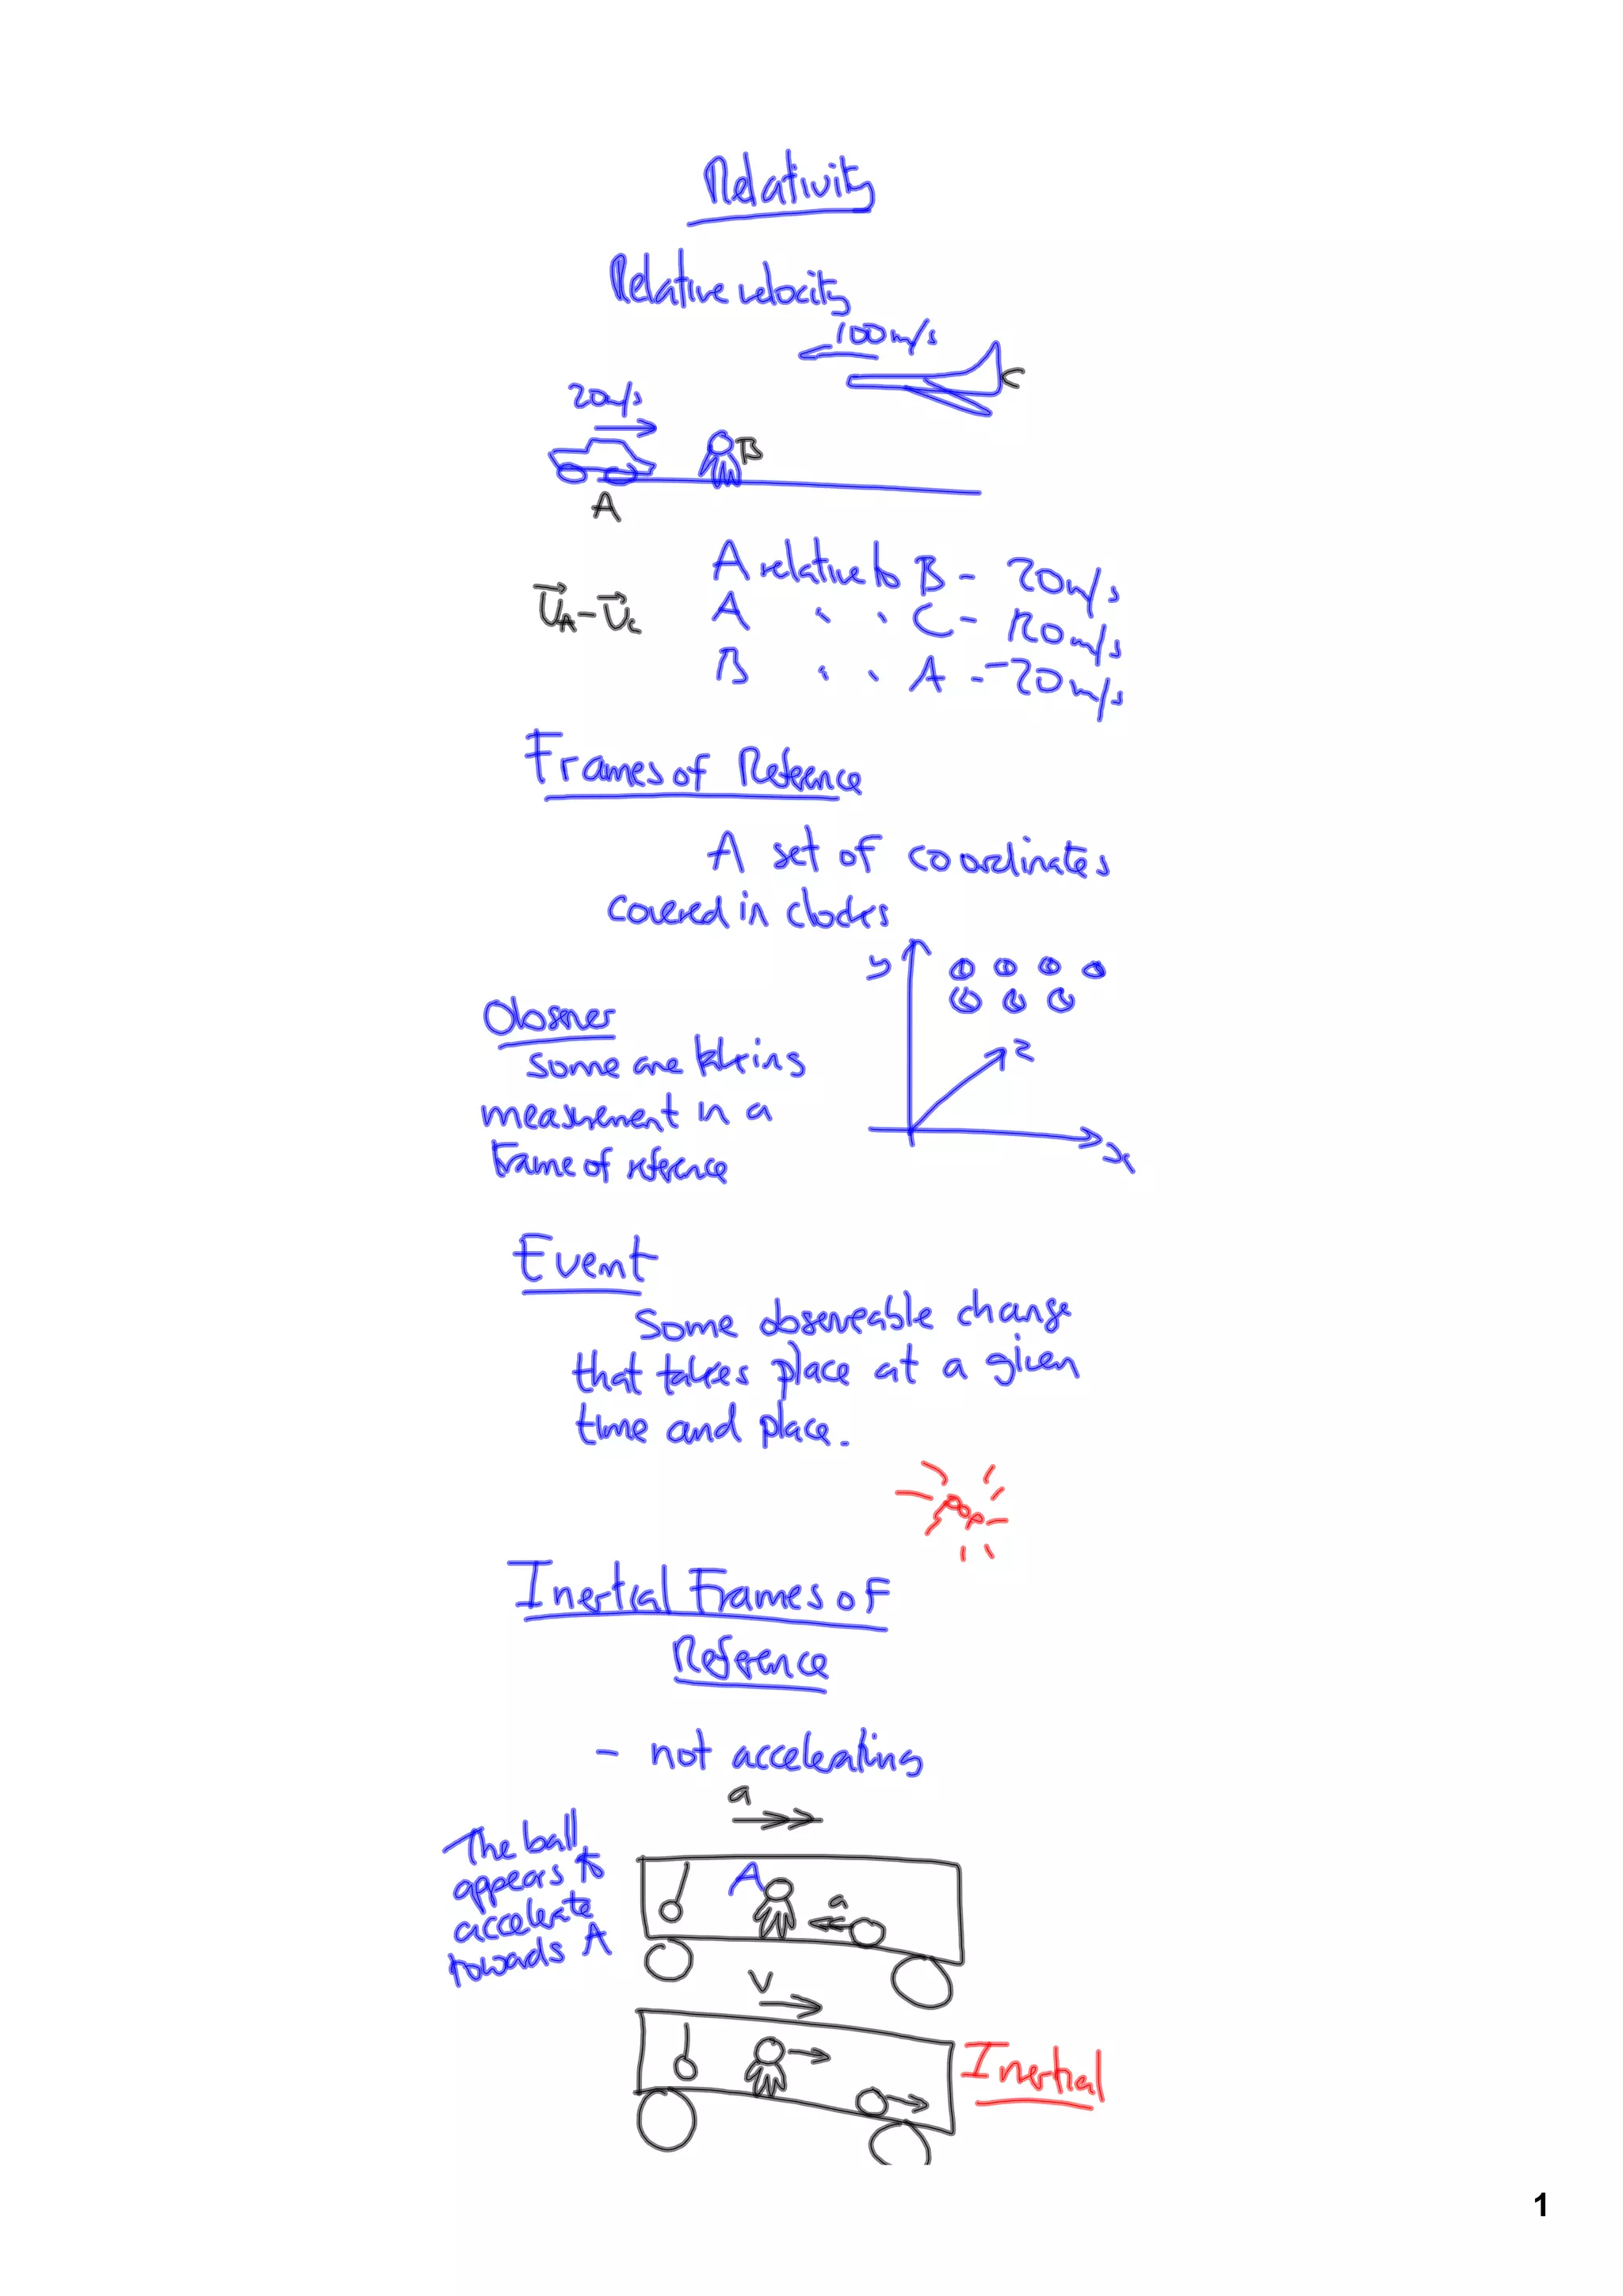 Relativity
Relative velocity
100m/s
C
20m/s
B
A
A relative to B - 20m/s
A " " C - 120m/s
B " " A - -20m/s
U⃗A - U⃗C
Frames of Reference
A set of coordinates
covered in clocks
y
z
x
Observer
some one taking
measurement in a
frame of reference
Event
Some observeable change
that takes place at a given
time and place.
pop
Inertial Frames of
Reference
- not accelerating
a
The ball
appears to
accelerate
towards A
A
a
v
Inertial
1